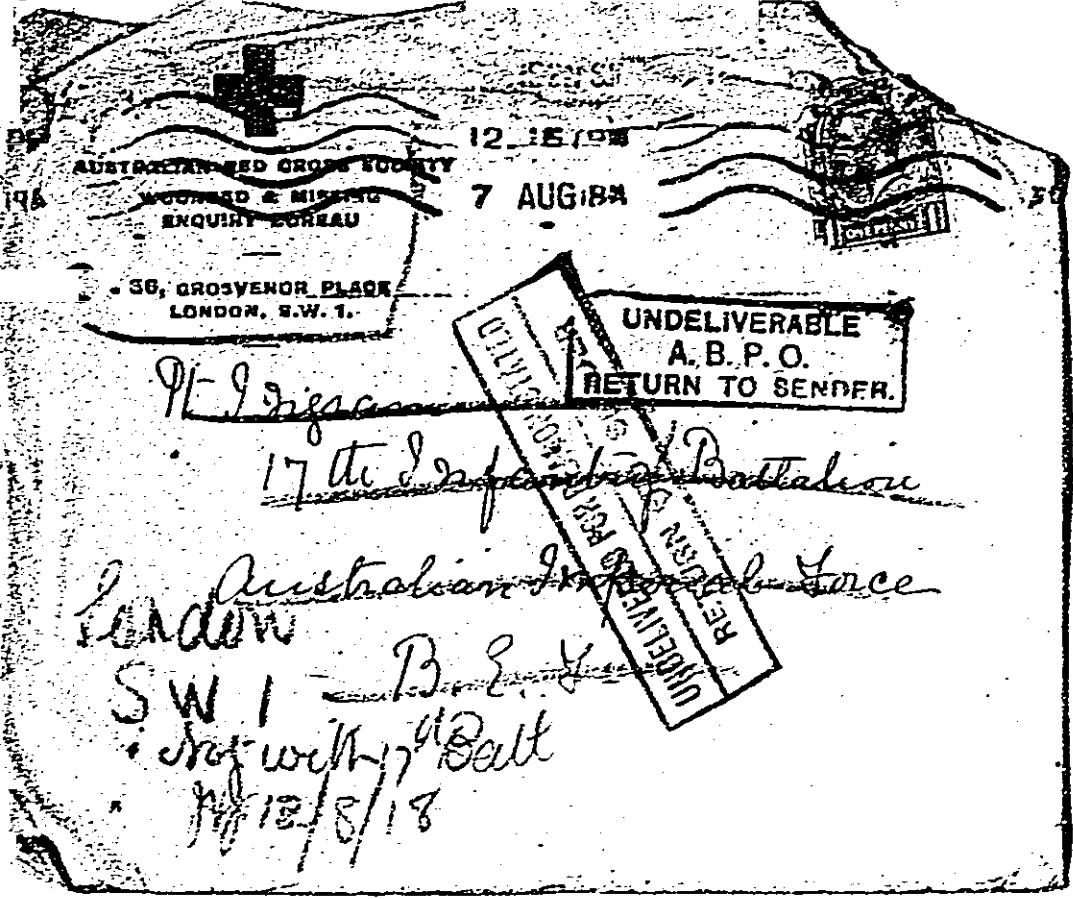 12.15 PM
7 AUG 18
AUSTRALIAN RED CROSS SOCIETY
WOUNDED & MISSING
ENQUIRY BUREAU
36, GROSVENOR PLACE
LONDON, S.W. 1.
UNDELIVERABLE
A. B. P. O.
RETURN TO SENDER.
UNDELIVERED FOR REASON STATED
RETURN TO SENDER
Pt
17th Infantry Battalion
Australian Imperial Force
B. E. F.
London
SW 1
Not with 17th Batt
12/8/18